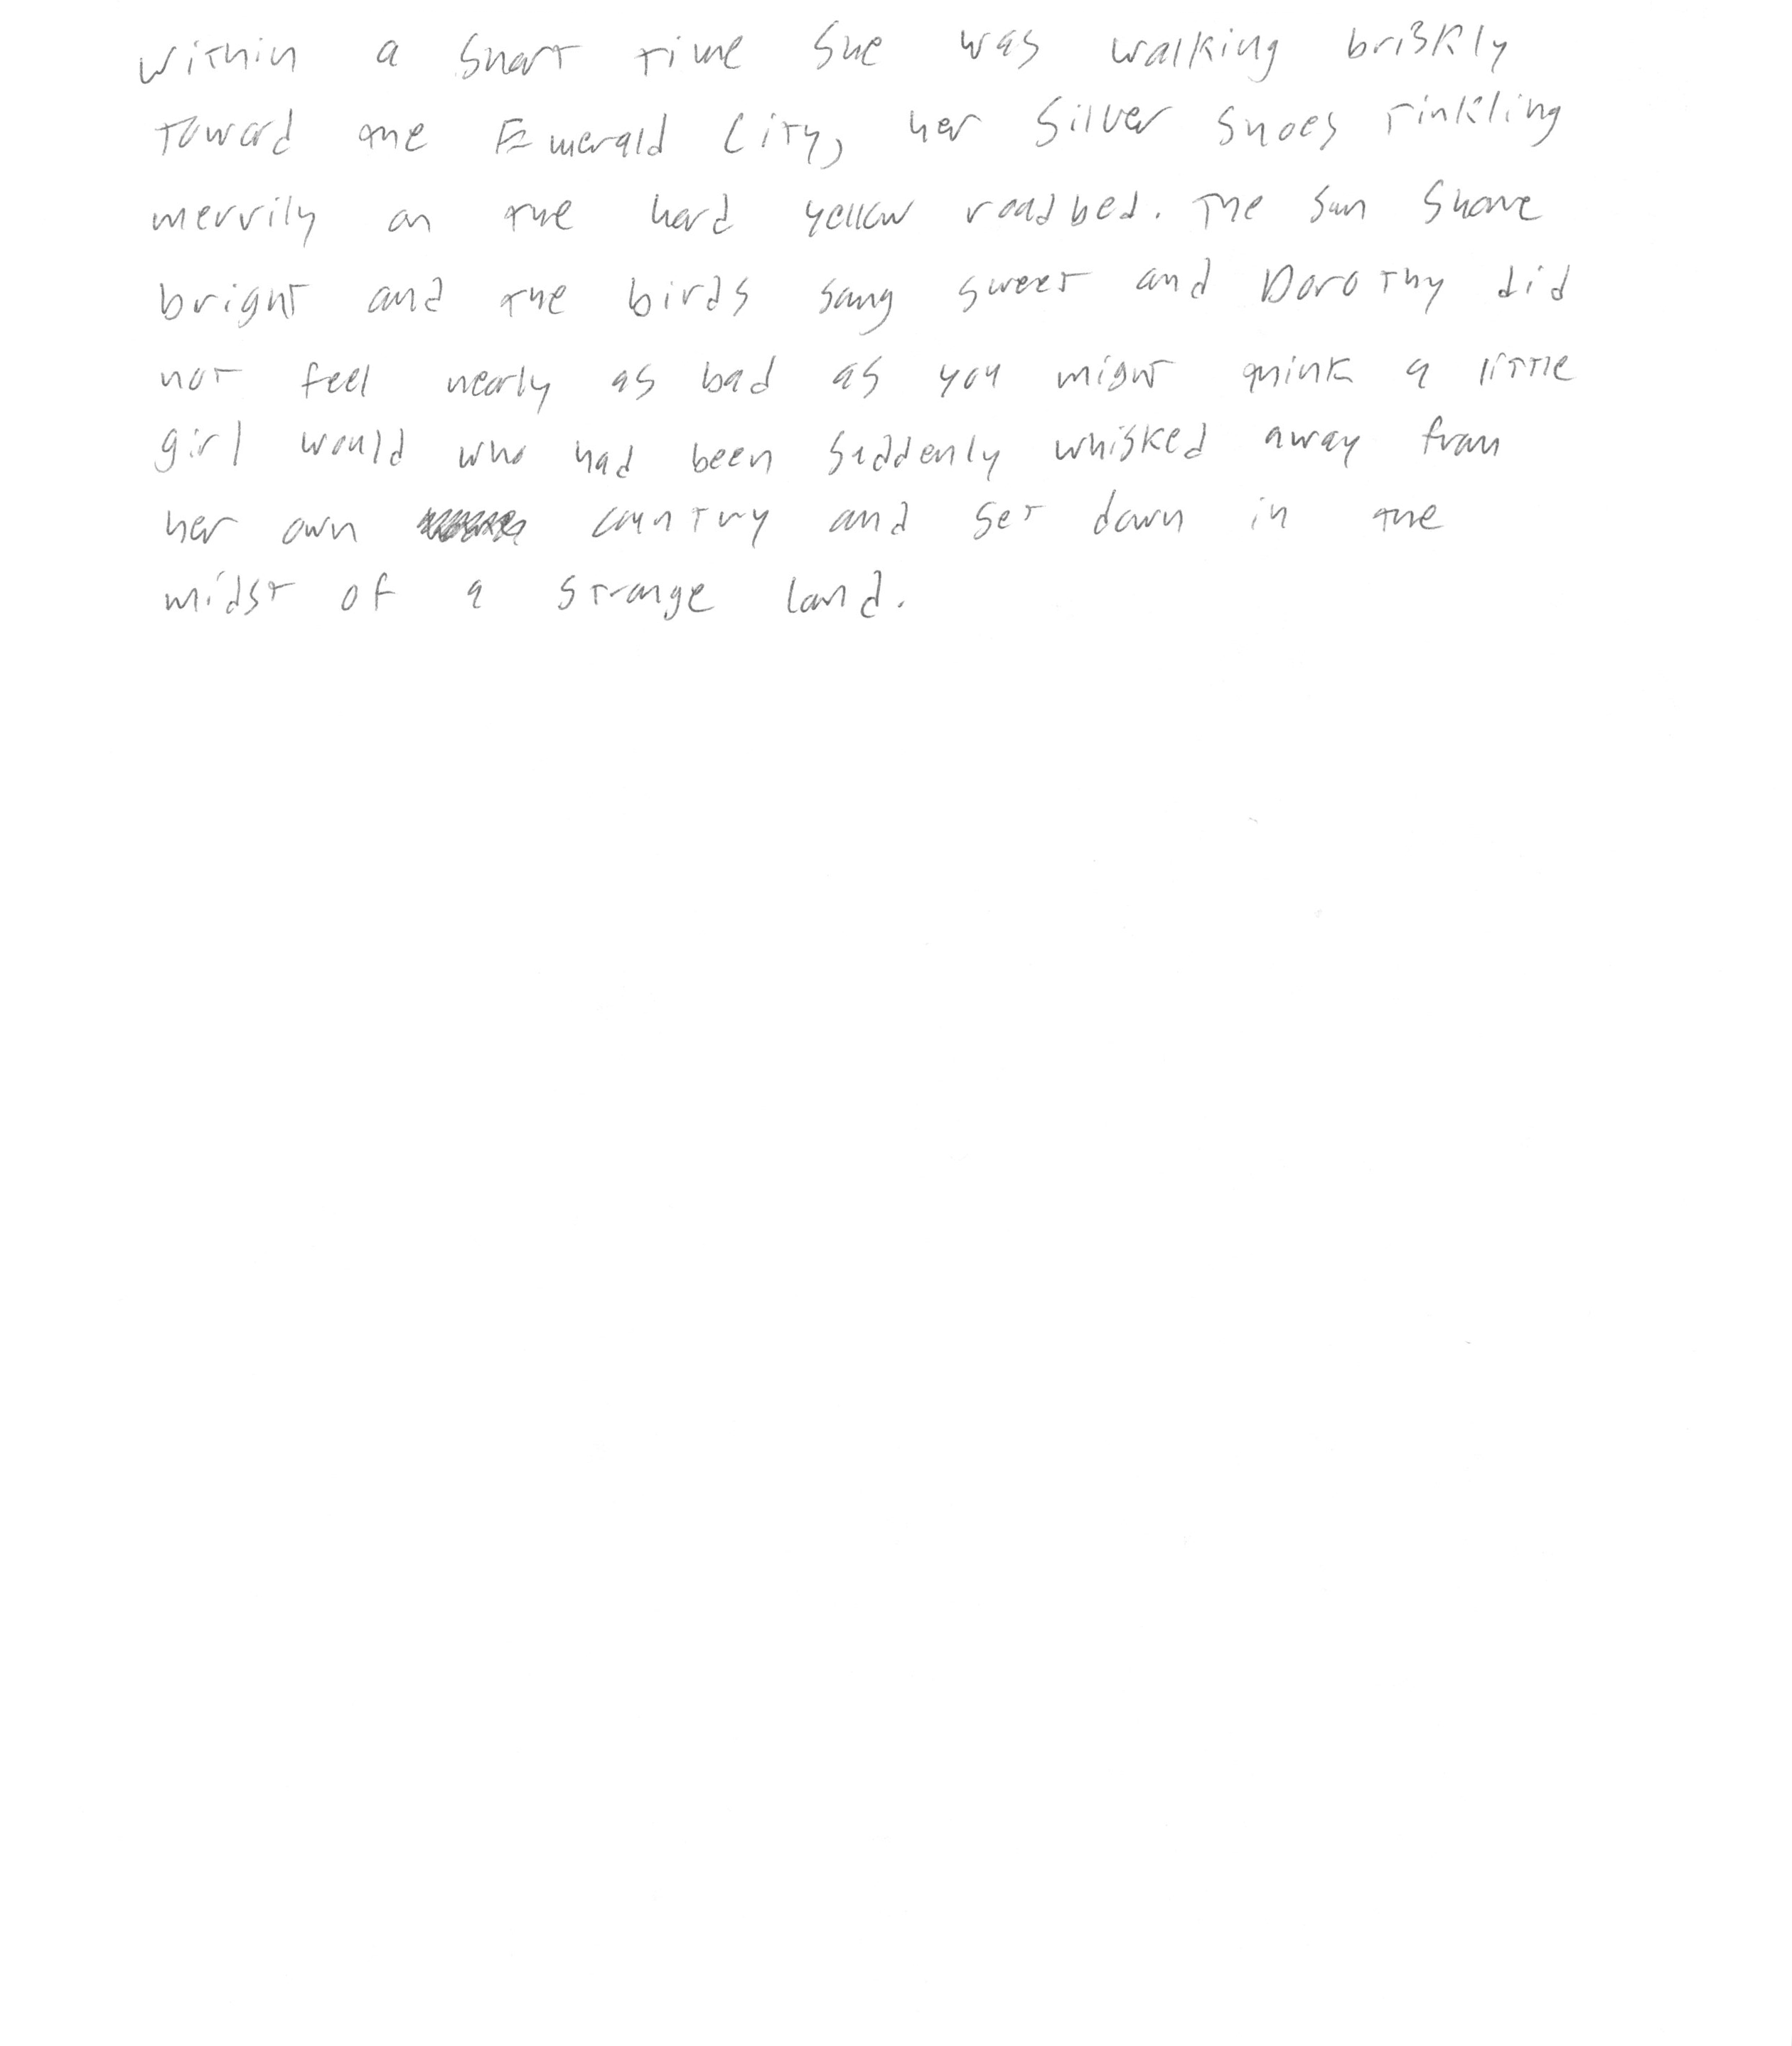 Within a short time she was walking briskly
toward the Emerald City, her Silver Shoes tinkling
merrily on the hard yellow roadbed. The sun shone
bright and the birds sang sweet and Dorothy did
not feel nearly as bad as you might think a little
girl would who had been suddenly whisked away from
her own country and set down in the
midst of a strange land.